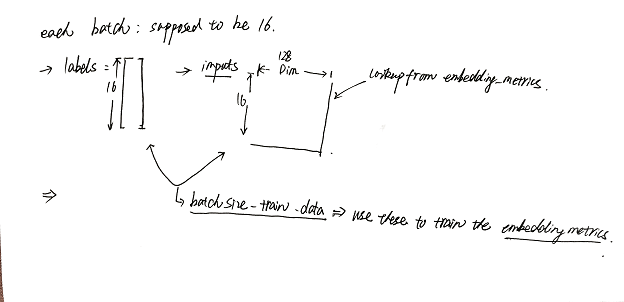 each batch : supposed to be 16.
→ labels = 16
→ inputs 128 Dim 16
Lookup from embedding_metrics.
⇒
batch size_train_data ⇒ use these to train the embedding metrics.